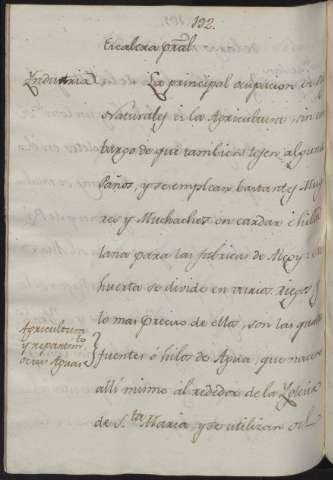 192.
Escalera pral.
Industria La principal ocupacion de
Naturales es la Agricultura, sin em
bargo de que tambien tejen algunos
Paños, y se emplean bastantes Muge
res y Muchachos en cardar é hilar
lana para las fabricas de
huerta se divide en varios riegos, y
lo mas precioso de ellos, son las quatro
Agricultura
y repartimto
de sus Aguas
fuentes ó hilos de Agua, que nacen
allí mismo al rededor de la Iglesia
de Sta. Maria, y se utilizan